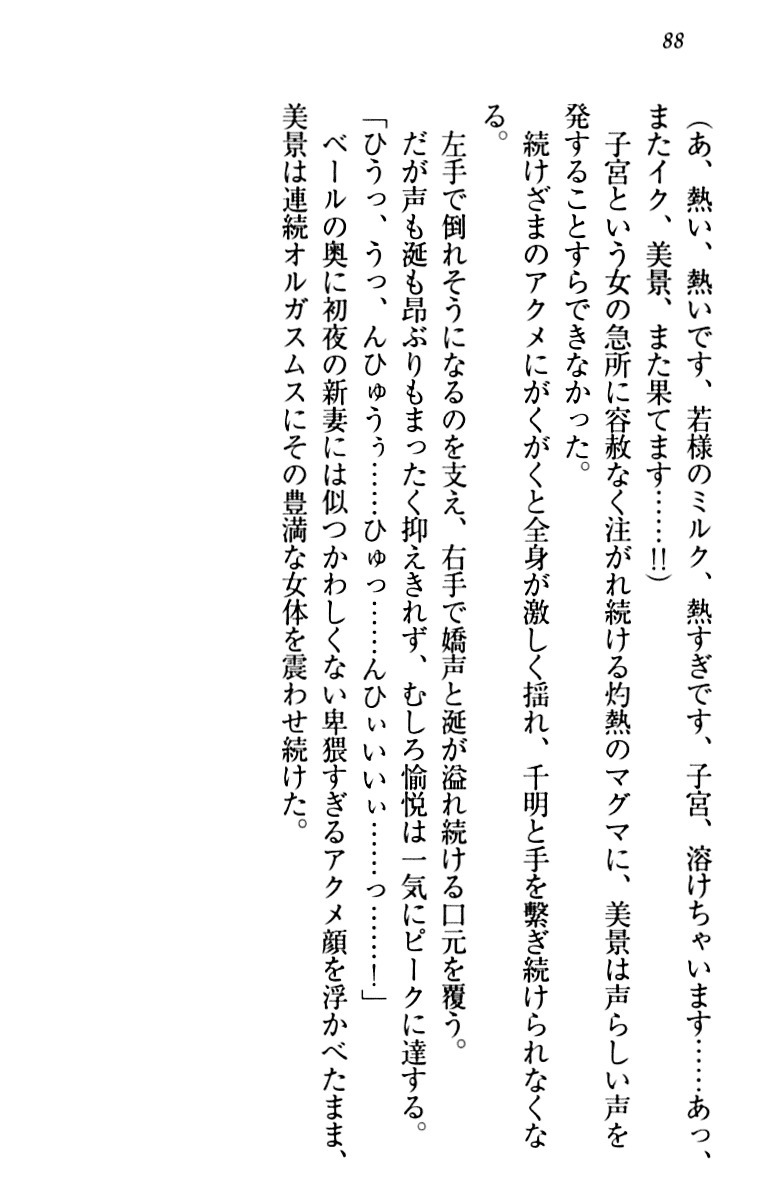 88
（あ、熱い、熱いです、若様のミルク、熱すぎです、子宮、溶けちゃいます……あっ、
またイク、美景、また果てます……!!）
　子宮という女の急所に容赦なく注がれ続ける灼熱のマグマに、美景は声らしい声を
発することすらできなかった。
　続けざまのアクメにがくがくと全身が激しく揺れ、千明と手を繋ぎ続けられなくな
る。
　左手で倒れそうになるのを支え、右手で嬌声と涎が溢れ続ける口元を覆う。
　だが声も涎も昂ぶりもまったく抑えきれず、むしろ愉悦は一気にピークに達する。
「ひうっ、うっ、んひゅうぅ……ひゅっ……んひぃいいぃ……っ……！」
　ベールの奥に初夜の新妻には似つかわしくない卑猥すぎるアクメ顔を浮かべたまま、
美景は連続オルガスムスにその豊満な女体を震わせ続けた。